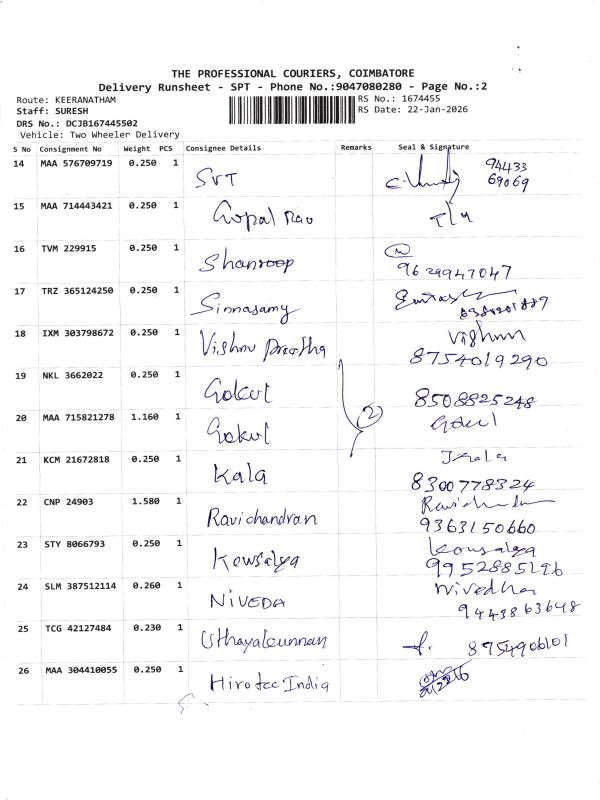 THE PROFESSIONAL COURIERS, COIMBATORE
Delivery Runsheet - SPT - Phone No.:9047080280 - Page No.:2
Route: KEERANATHAM RS No.: 1674455
Staff: SURESH RS Date: 22-Jan-2026
DRS No.: DCJB167445502
Vehicle: Two Wheeler Delivery
S No Consignment No Weight PCS Consignee Details Remarks Seal & Signature
14 MAA 576709719 0.250 1 SVT 94433
69069
15 MAA 714443421 0.250 1 Gopal Rao
16 TVM 229915 0.250 1 Shanroop
9629947047
17 TRZ 365124250 0.250 1 Sinnasamy
18 IXM 303798672 0.250 1 Vishnu Preetha Vishnu
8754019290
19 NKL 3662022 0.250 1 Gokul 8508825248
20 MAA 715821278 1.160 1 Gokul 2 Gokul
21 KCM 21672818 0.250 1 Kala Kala
8300778324
22 CNP 24903 1.580 1 Ravichandran
9363150660
23 STY 8066793 0.250 1 Kowsalya Kowsalya
9952885196
24 SLM 387512114 0.260 1 NIVEDA Nivedha
9443863648
25 TCG 42127484 0.230 1 Uthayakunnan 8754906101
26 MAA 304410055 0.250 1 Hirotec India